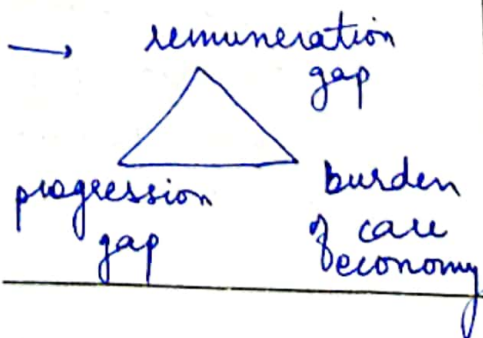 → remuneration
gap
progression
gap
burden
of care
economy